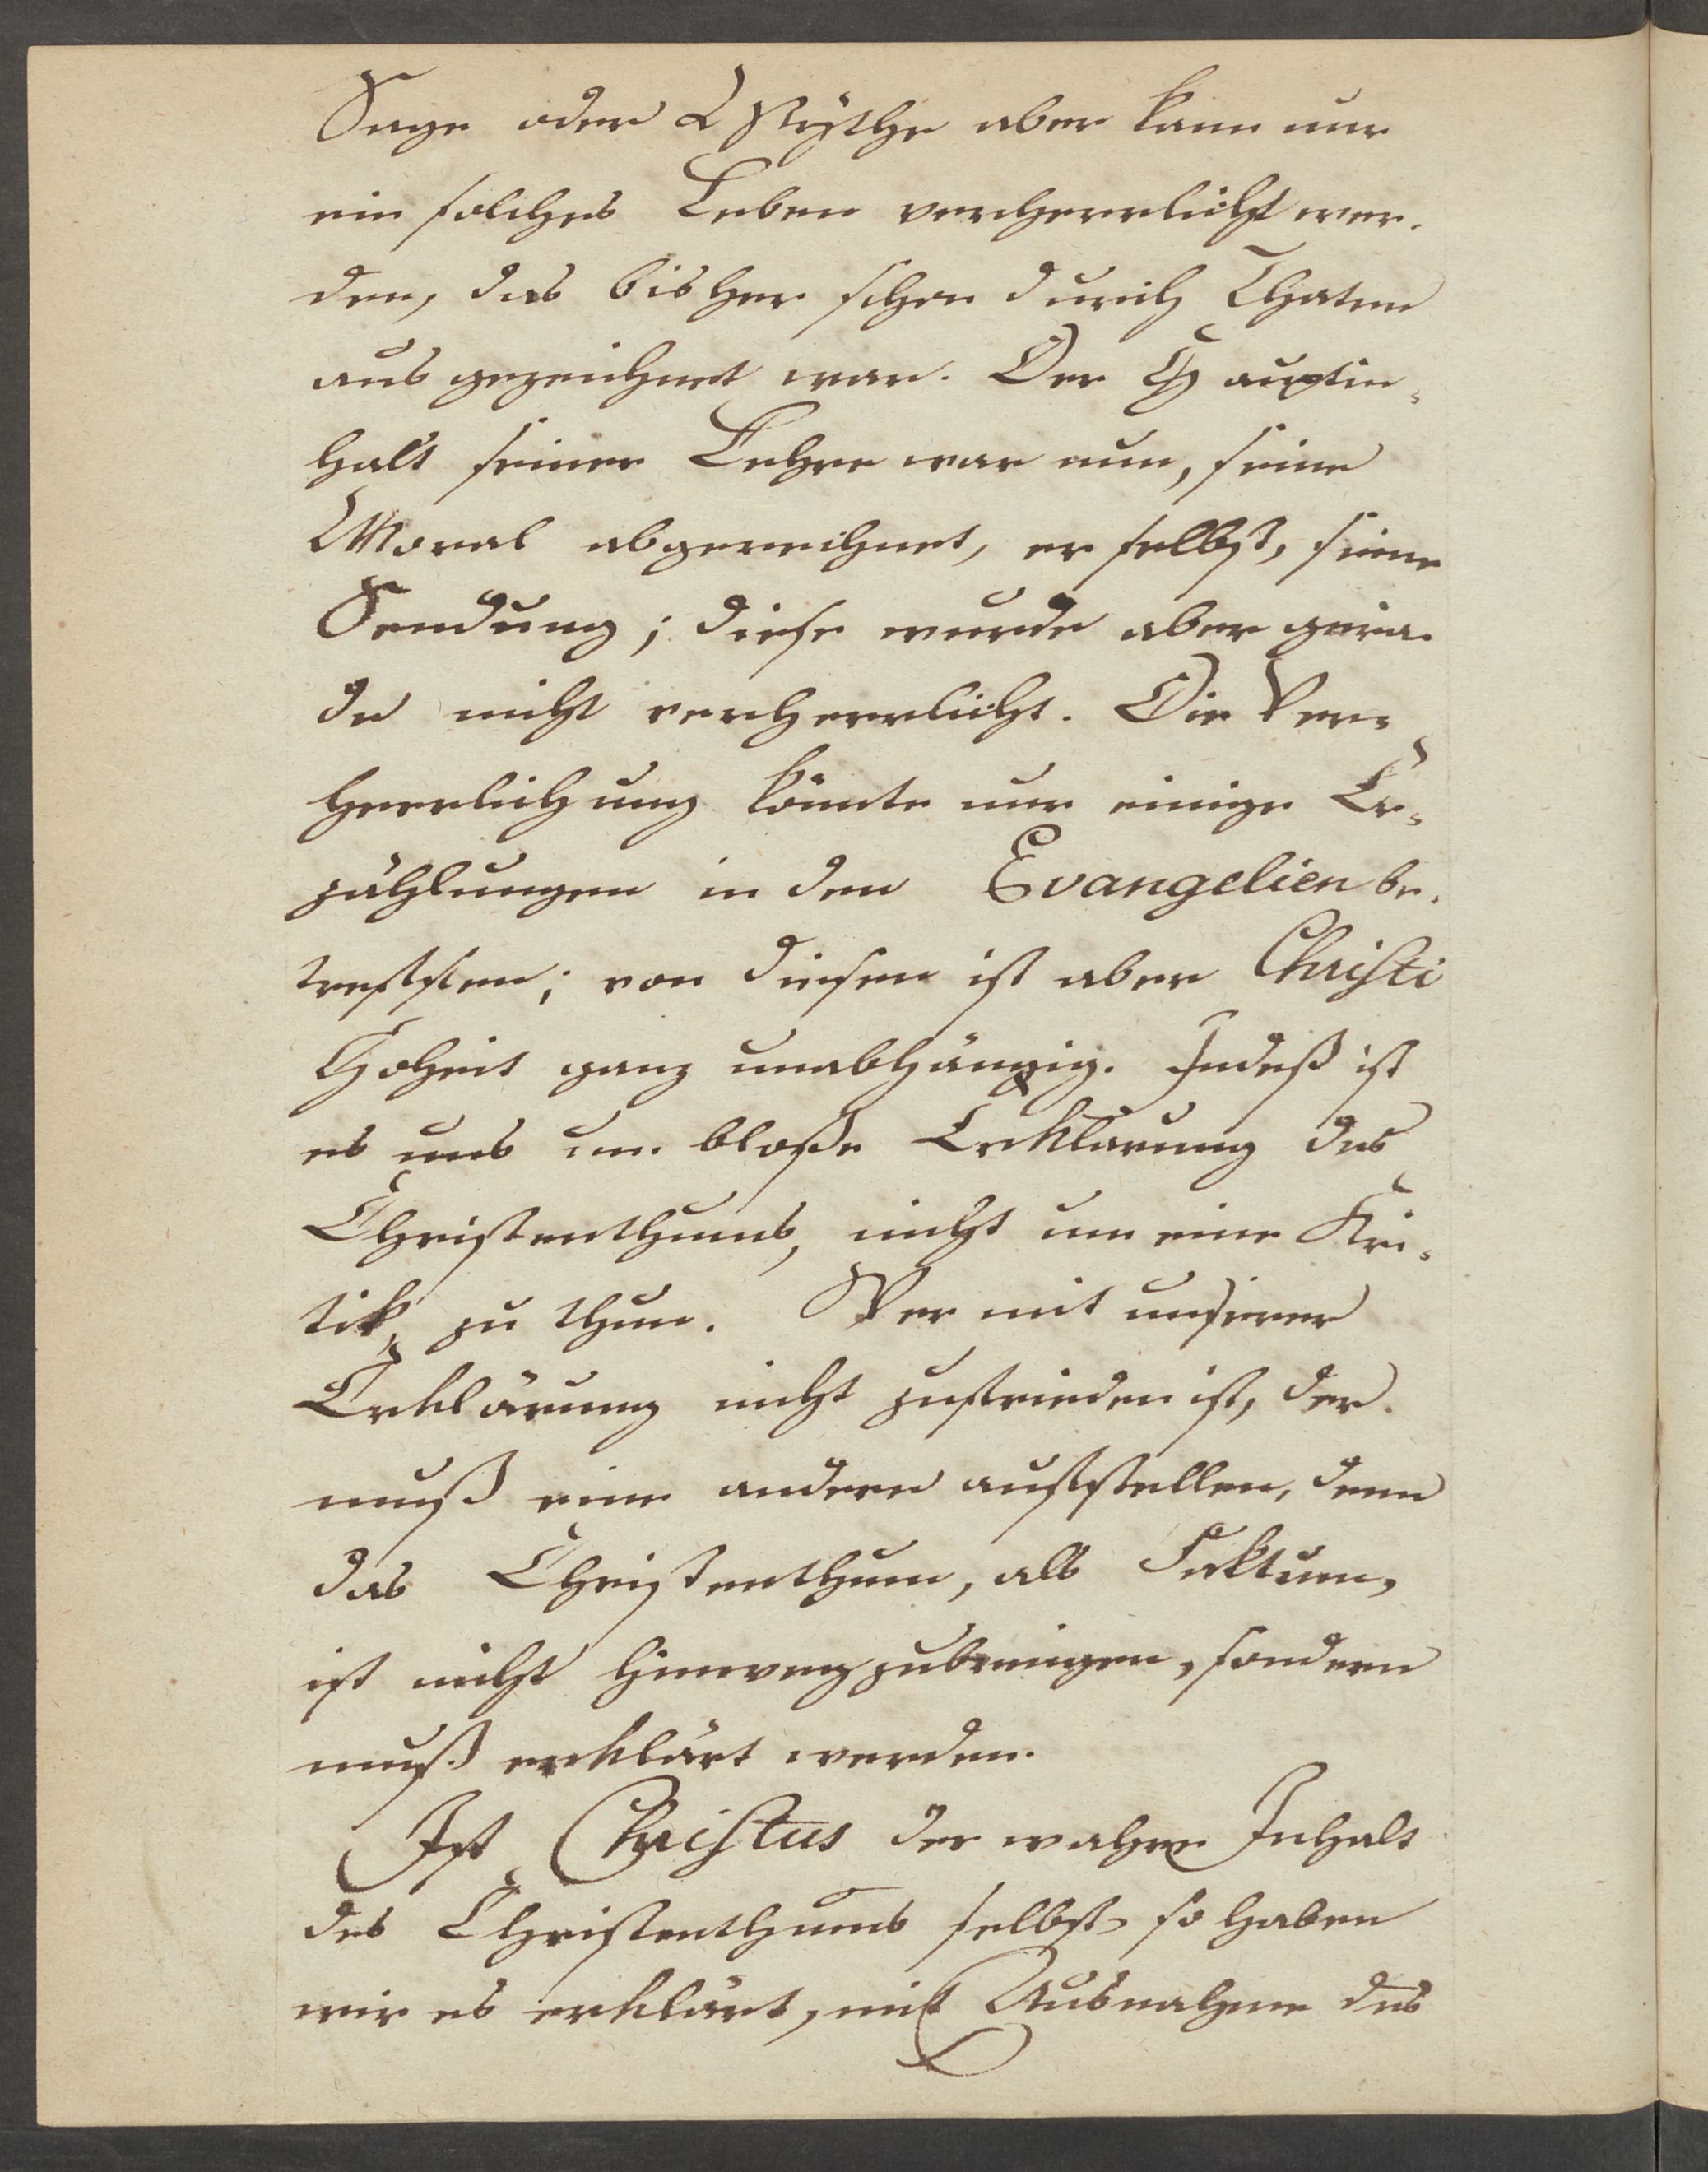 Sage oder Mythe aber kann nur
ein solches Leben verherrlicht wer-
den, das bisher schon durch Thaten
ausgezeichnet war. Der Hauptin-
halt seiner Lehre war nun, seine
Moral abgerechnet, er selbst, seine
Sendung; diese wurde aber gera-
de nicht verherrlicht. Die Ver-
herrlichung könnte nur einige Er-
zählungen in den Evangelien be-
treffen; von diesen ist aber Christi
Hoheit ganz unabhängig. Indeß ist
es uns um bloße Erklärung des
Christenthums, nicht um eine Kri-
tik, zu thun. Wer mit unserer
Erklärung nicht zufrieden ist, der
muß eine andere aufstellen, denn
das Christenthum, als Faktum,
ist nicht hinwegzubringen, sondern
muß erklärt werden.
Ist Christus der wahre Inhalt
des Christenthums selbst, so haben
wir es erklärt, mit Ausnahme des